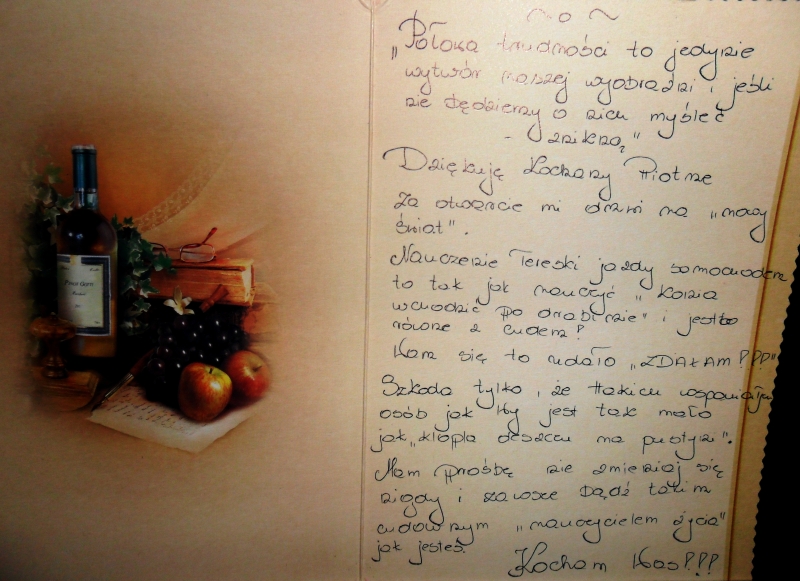 ~ o ~
„Połowa trudności to jedynie
wytwór naszej wyobraźni i jeśli
nie będziemy o nich myśleć
- znikną"
Dziękuję Kochany Piotrze
Za otwarcie mi drzwi na „nowy
świat".
Nauczenie Tereski jazdy samochodem
to tak jak nauczyć „konia
wchodzić po drabinie" i jest to
równe z cudem!
Nam się to udało „ZDAŁAM!!!"
Szkoda tylko, że takich wspaniałych
osób jak Ty jest tak mało
jak „kropla deszczu na pustyni".
Mam prośbę nie zmieniaj się
nigdy i zawsze bądź takim
cudownym „nauczycielem życia"
jak jesteś.
Kocham Was!!!